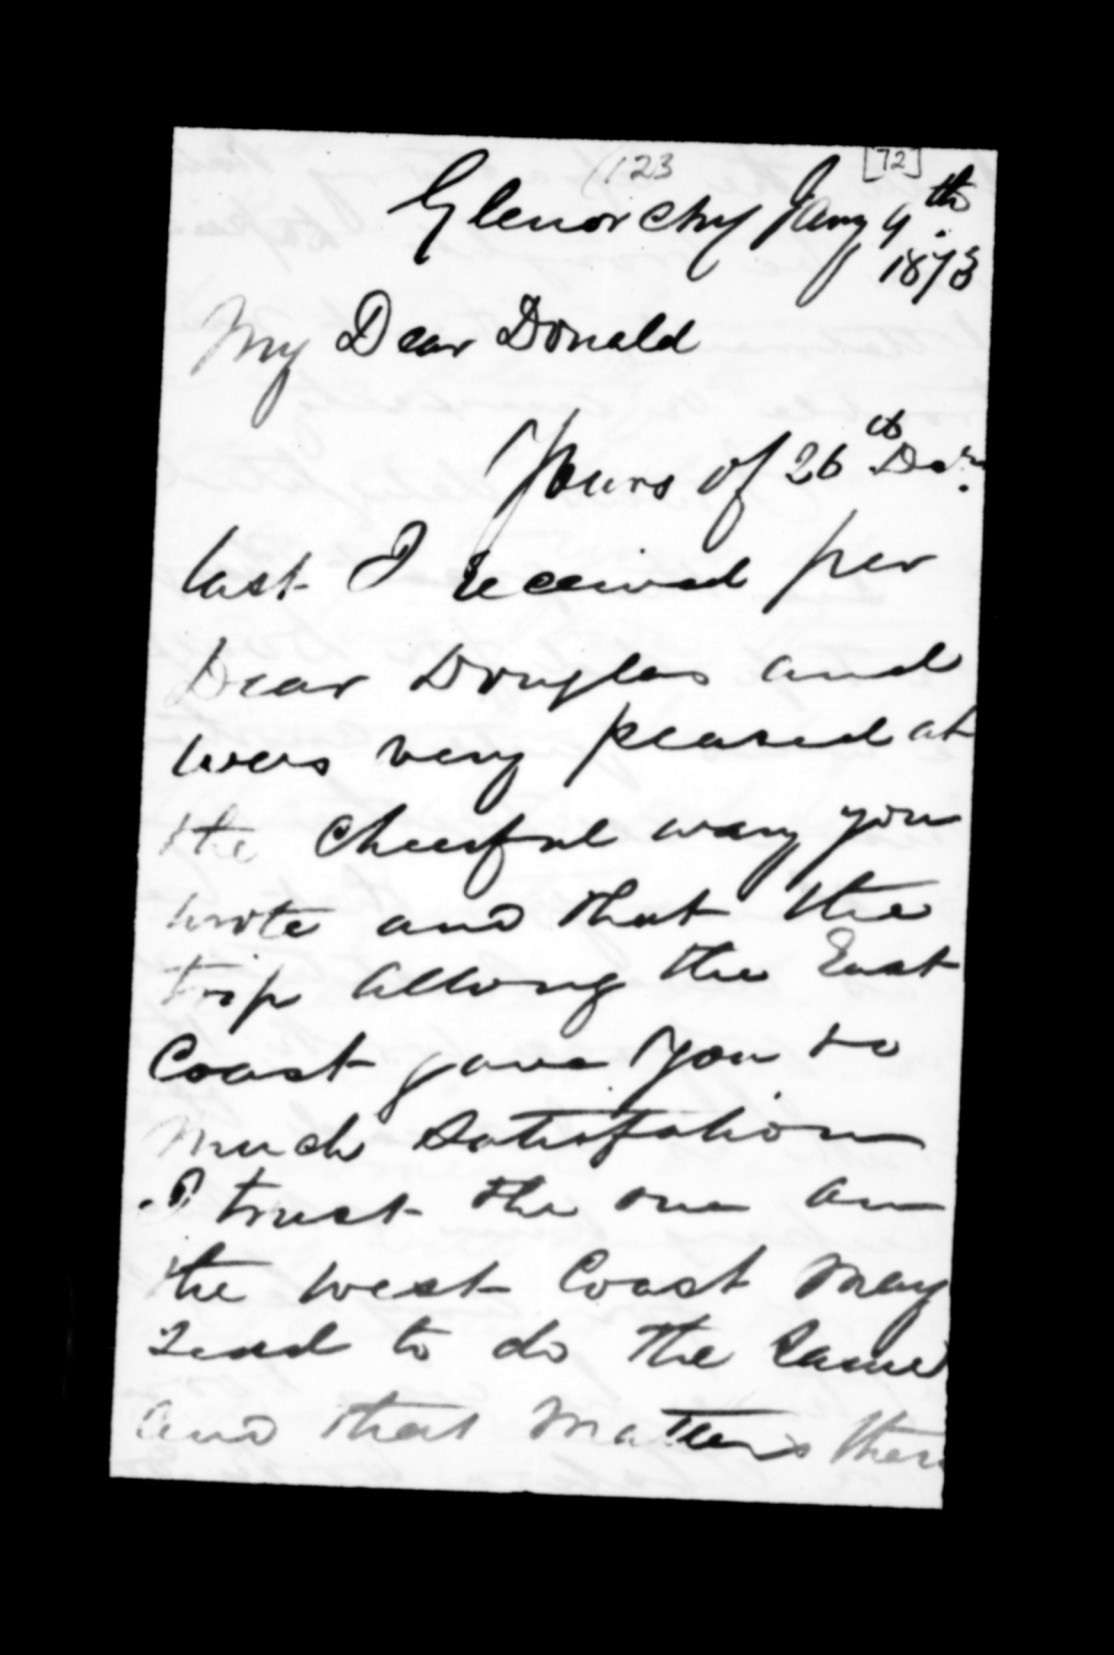 (123 [72]
Glenorchy Jany 9th
1873
My Dear Donald
Yours of 26th Decr.
last I received per
Dear Douglas and
was very peased at
the cheerful way you
wrote and that the
trip allong the East
Coast gave you so
much Satisfation
I trust the one on
the west Coast may
tend to do the same
and that Matters there